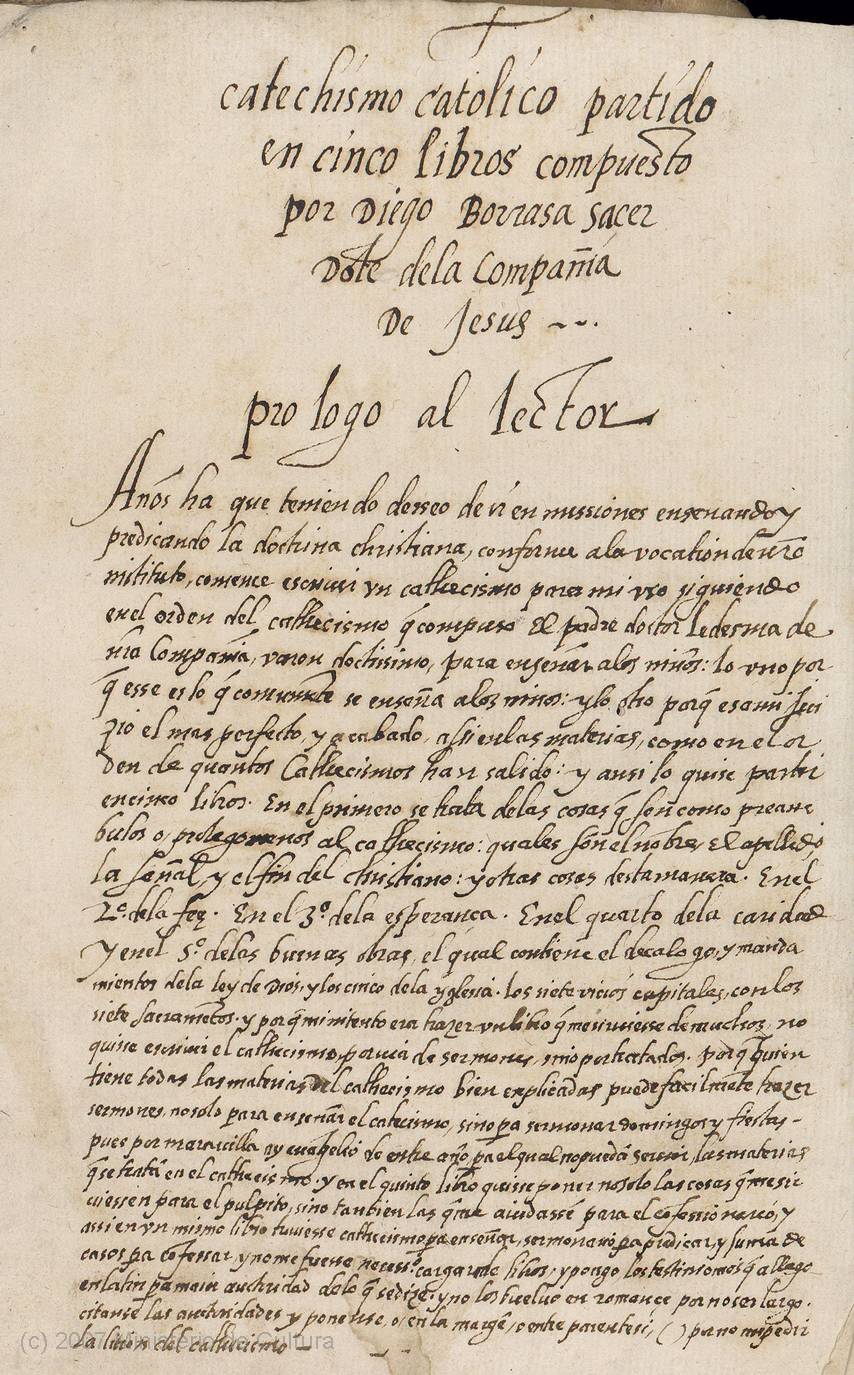 catechismo catolico partido
en cinco libros compuesto
por Diego Borrasa sacer
Dote dela Compañia
De Jesus
prologo al lector
Años ha que teniendo desseo de ir en missiones ensenando y
predicando la doctrina christiana, conforme ala vocation de nrõ
instituto, comence escrivir vn cathecismo para mi vso siguiendo
en el orden del cathecismo q̃ compuso El padre doctor Ledesma de
nrã Compañia, varon doctissimo, para enseñar alos niños: lo vno por
q̃ esse es lo q̃ comunmẽte se enseña alos niños: y lo otro porq̃ es a mi jui
zio el mas perfecto, y acabado, assi en las materias, como en el or
den de quantos Cathecismos han salido: y ansi lo quise partir
en cinco libros. En el primero se trata delas cosas q̃ son como pream
bulos o prolegomenos al cathecismo: quales son el nobre, El apellido
la señal y el fin del christiano: y otras cosas desta manera. En el
2º. dela fee. En el 3º. dela esperança. En el quarto dela caridad
Y en el 5º. delas buenas obras, el qual contiene el decalogo, y manda
mientos dela ley de Dios, y los cinco dela yglesia. los siete vicios capitales, con los
siete sacrametos. y porq̃ mi intento era hazer vn libro q̃ me sirviesse de muchos, no
quise escrivir el cathecismo por via de sermones, sino por tratados. porq̃ quien
tiene todas las materias del cathecismo bien explicadas puede facilmẽte hazer
sermones, no solo para enseñar el catecismo, sino pa sermonar domingos y fiestas
pues por maravilla ay euangelio de entre año, pa el qual no puedã servir, las materias
q̃ se tratã en el cathecismo. y en el quinto libro quisse poner no solo las cosas q̃ me sir
viessen para el pulpito, sino tambien las q̃ me aiudassẽ para el cõfessionario, y
assi en vn mismo libro tuviesse cathecismo pa enseñar, sermonario pa predicar, y suma de
casos pa cõfessar, y no me fuesse necessº. cargar de libros. y pongo los testimonios q̃ allego
en latin pa maior authoridad de lo q̃ se dize: y no los buelvo en romance por no ser largo.
citanse las authoridades y ponense, o en la margẽ, o entre parentesi, ( ) por no impedir
la lition del cathecismo
(c) 2007 Ministerio de Cultura